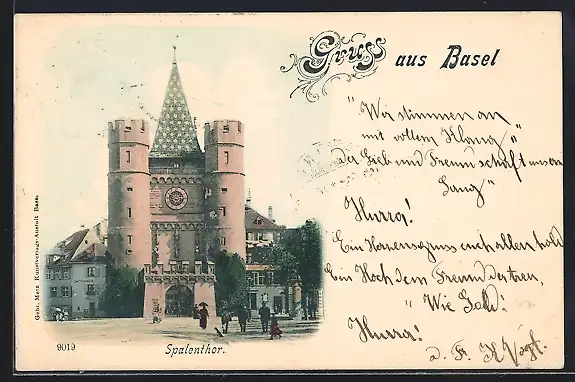 Gruss aus Basel
"Wir stimmen an
mit vollem Klang"
der Lieb und Freundschaft unsern
Sang"
Hurra!
Ein Herzensgruss euch allen hold
Ein Hoch dem Freund der treu,
"Wie Gold!
Hurra!
d. Fr. K Vogt.
Gebr. Metz Kunstverlags-Anstalt Basel
9019
Spalenthor.